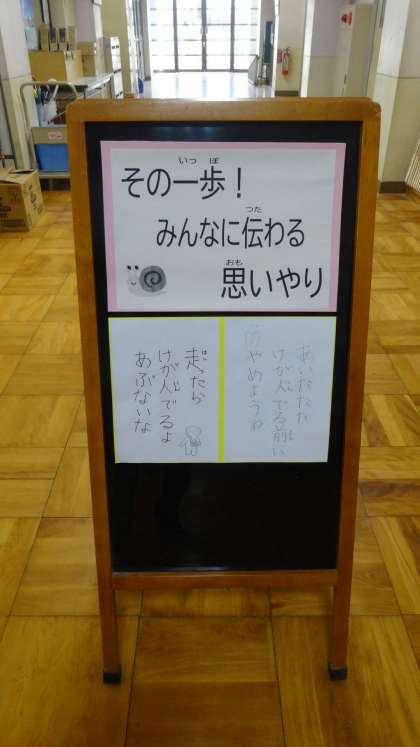 いっ ぽ
その一歩！
つた
みんなに伝わる
おも
思いやり
あいたたた
けが人でる前に
やめようね
走ったら
けが人でるよ
あぶないな